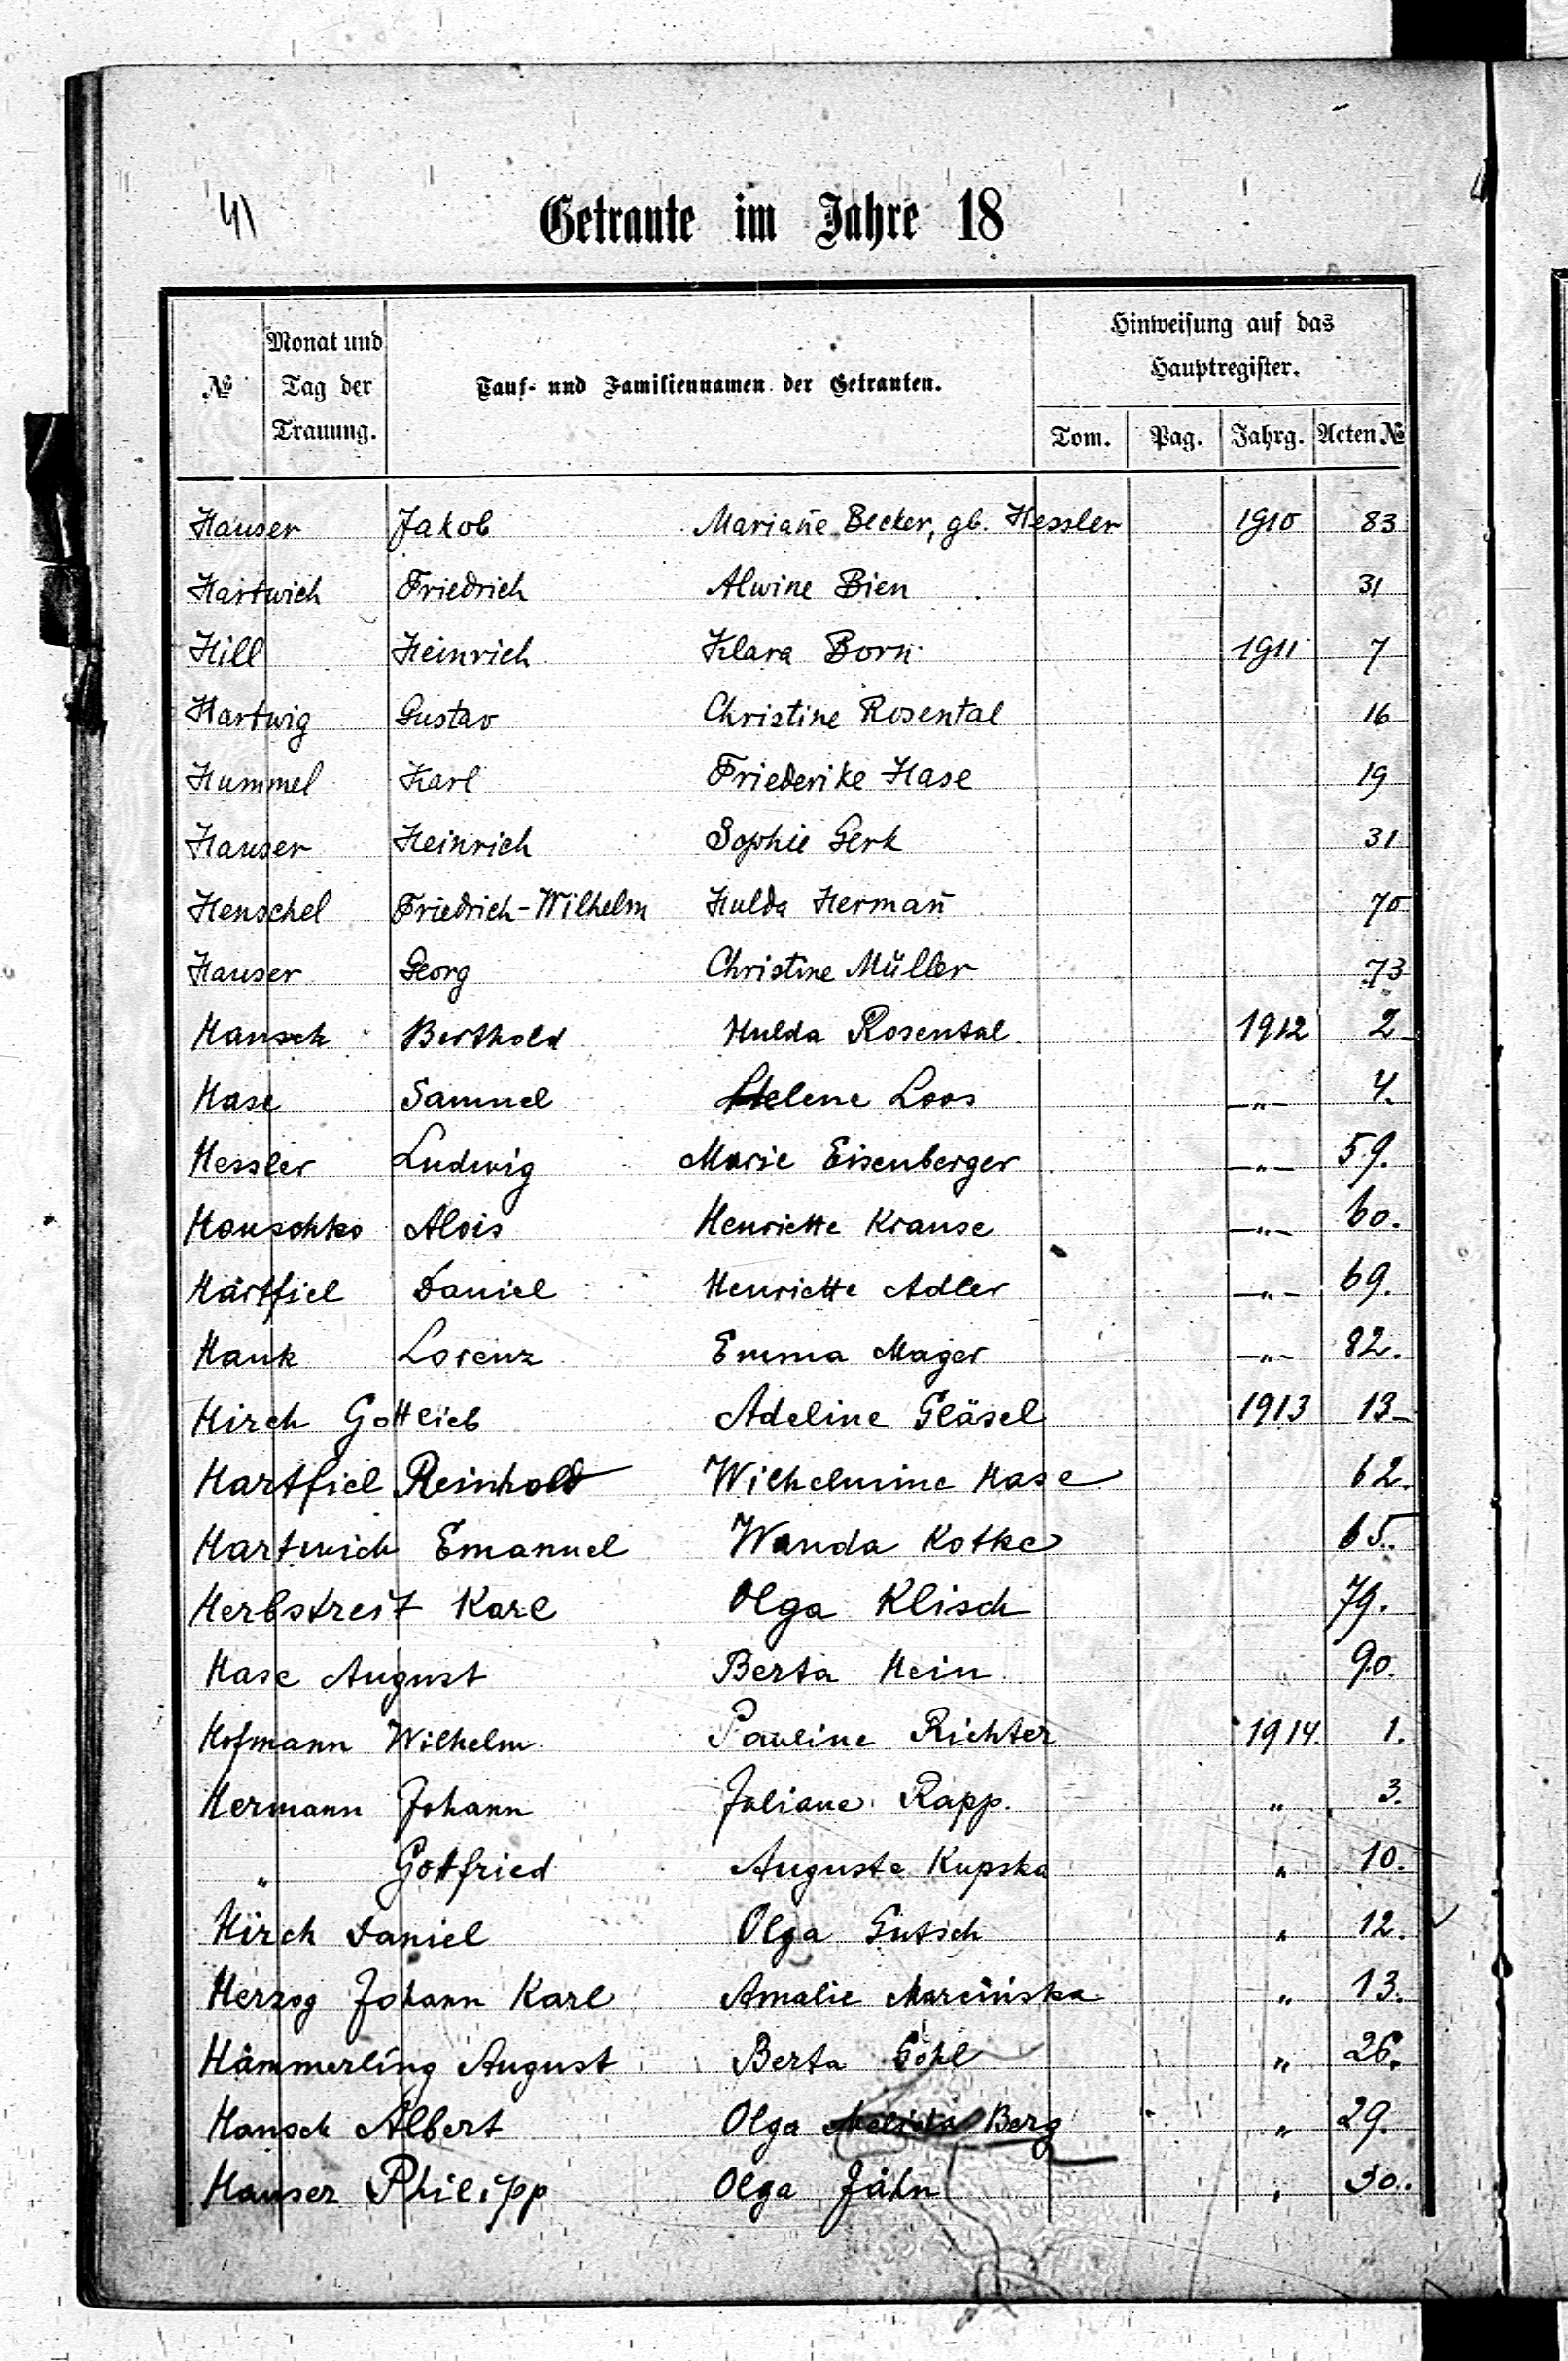 41
Getraute im Jahre 18
№ Monat und Tag der Trauung. Tauf- und Familiennamen der Getrauten. Hinweisung auf das Hauptregister.
Tom. Pag. Jahrg. Acten №
Hauser Jakob Mariane̅ Becker, gb. Hessler 1910 83
Hartwich Friedrich Alwine Bien 31
Hill Heinrich Klara Born 1911 7
Hartwig Gustav Christine Rosental 16
Hummel Karl Friederike Hase 19
Hauser Heinrich Sophie Gerk 31
Henschel Friedrich-Wilhelm Hulda Herman̅ 70
Hauser Georg Christine Müller 73
Hansch Berthold Hulda Rosental 1912 2
Hase Samuel Helene Loos —"— 4.
Hessler Ludwig Marie Eisenberger —"— 59.
Hanschko Alois Henriette Krause —"— 60.
Hartfiel Daniel Henriette Adler —"— 69.
Hauk Lorenz Emma Mager —"— 82.
Hirch Gottlieb Adeline Gläsel 1913 13
Hartfiel Reinhold Wilhelmine Hase 62.
Hartwich Emanuel Wanda Kotke 65.
Herbstreit Karl Olga Klisch 79.
Hase August Berta Hein 90.
Hofmann Wilhelm Pauline Richter 1914. 1.
Hermann Johann Juliane Rapp. " 3.
" Gottfried Auguste Kupska " 10.
Hirch Daniel Olga Gutsch " 12.
Herzog Johann Karl Amalie " 13.
Hämmerling August Berta Göhl " 26.
Hansch Albert Olga Berg " 29.
Hauser Philipp Olga Jähn " 30.